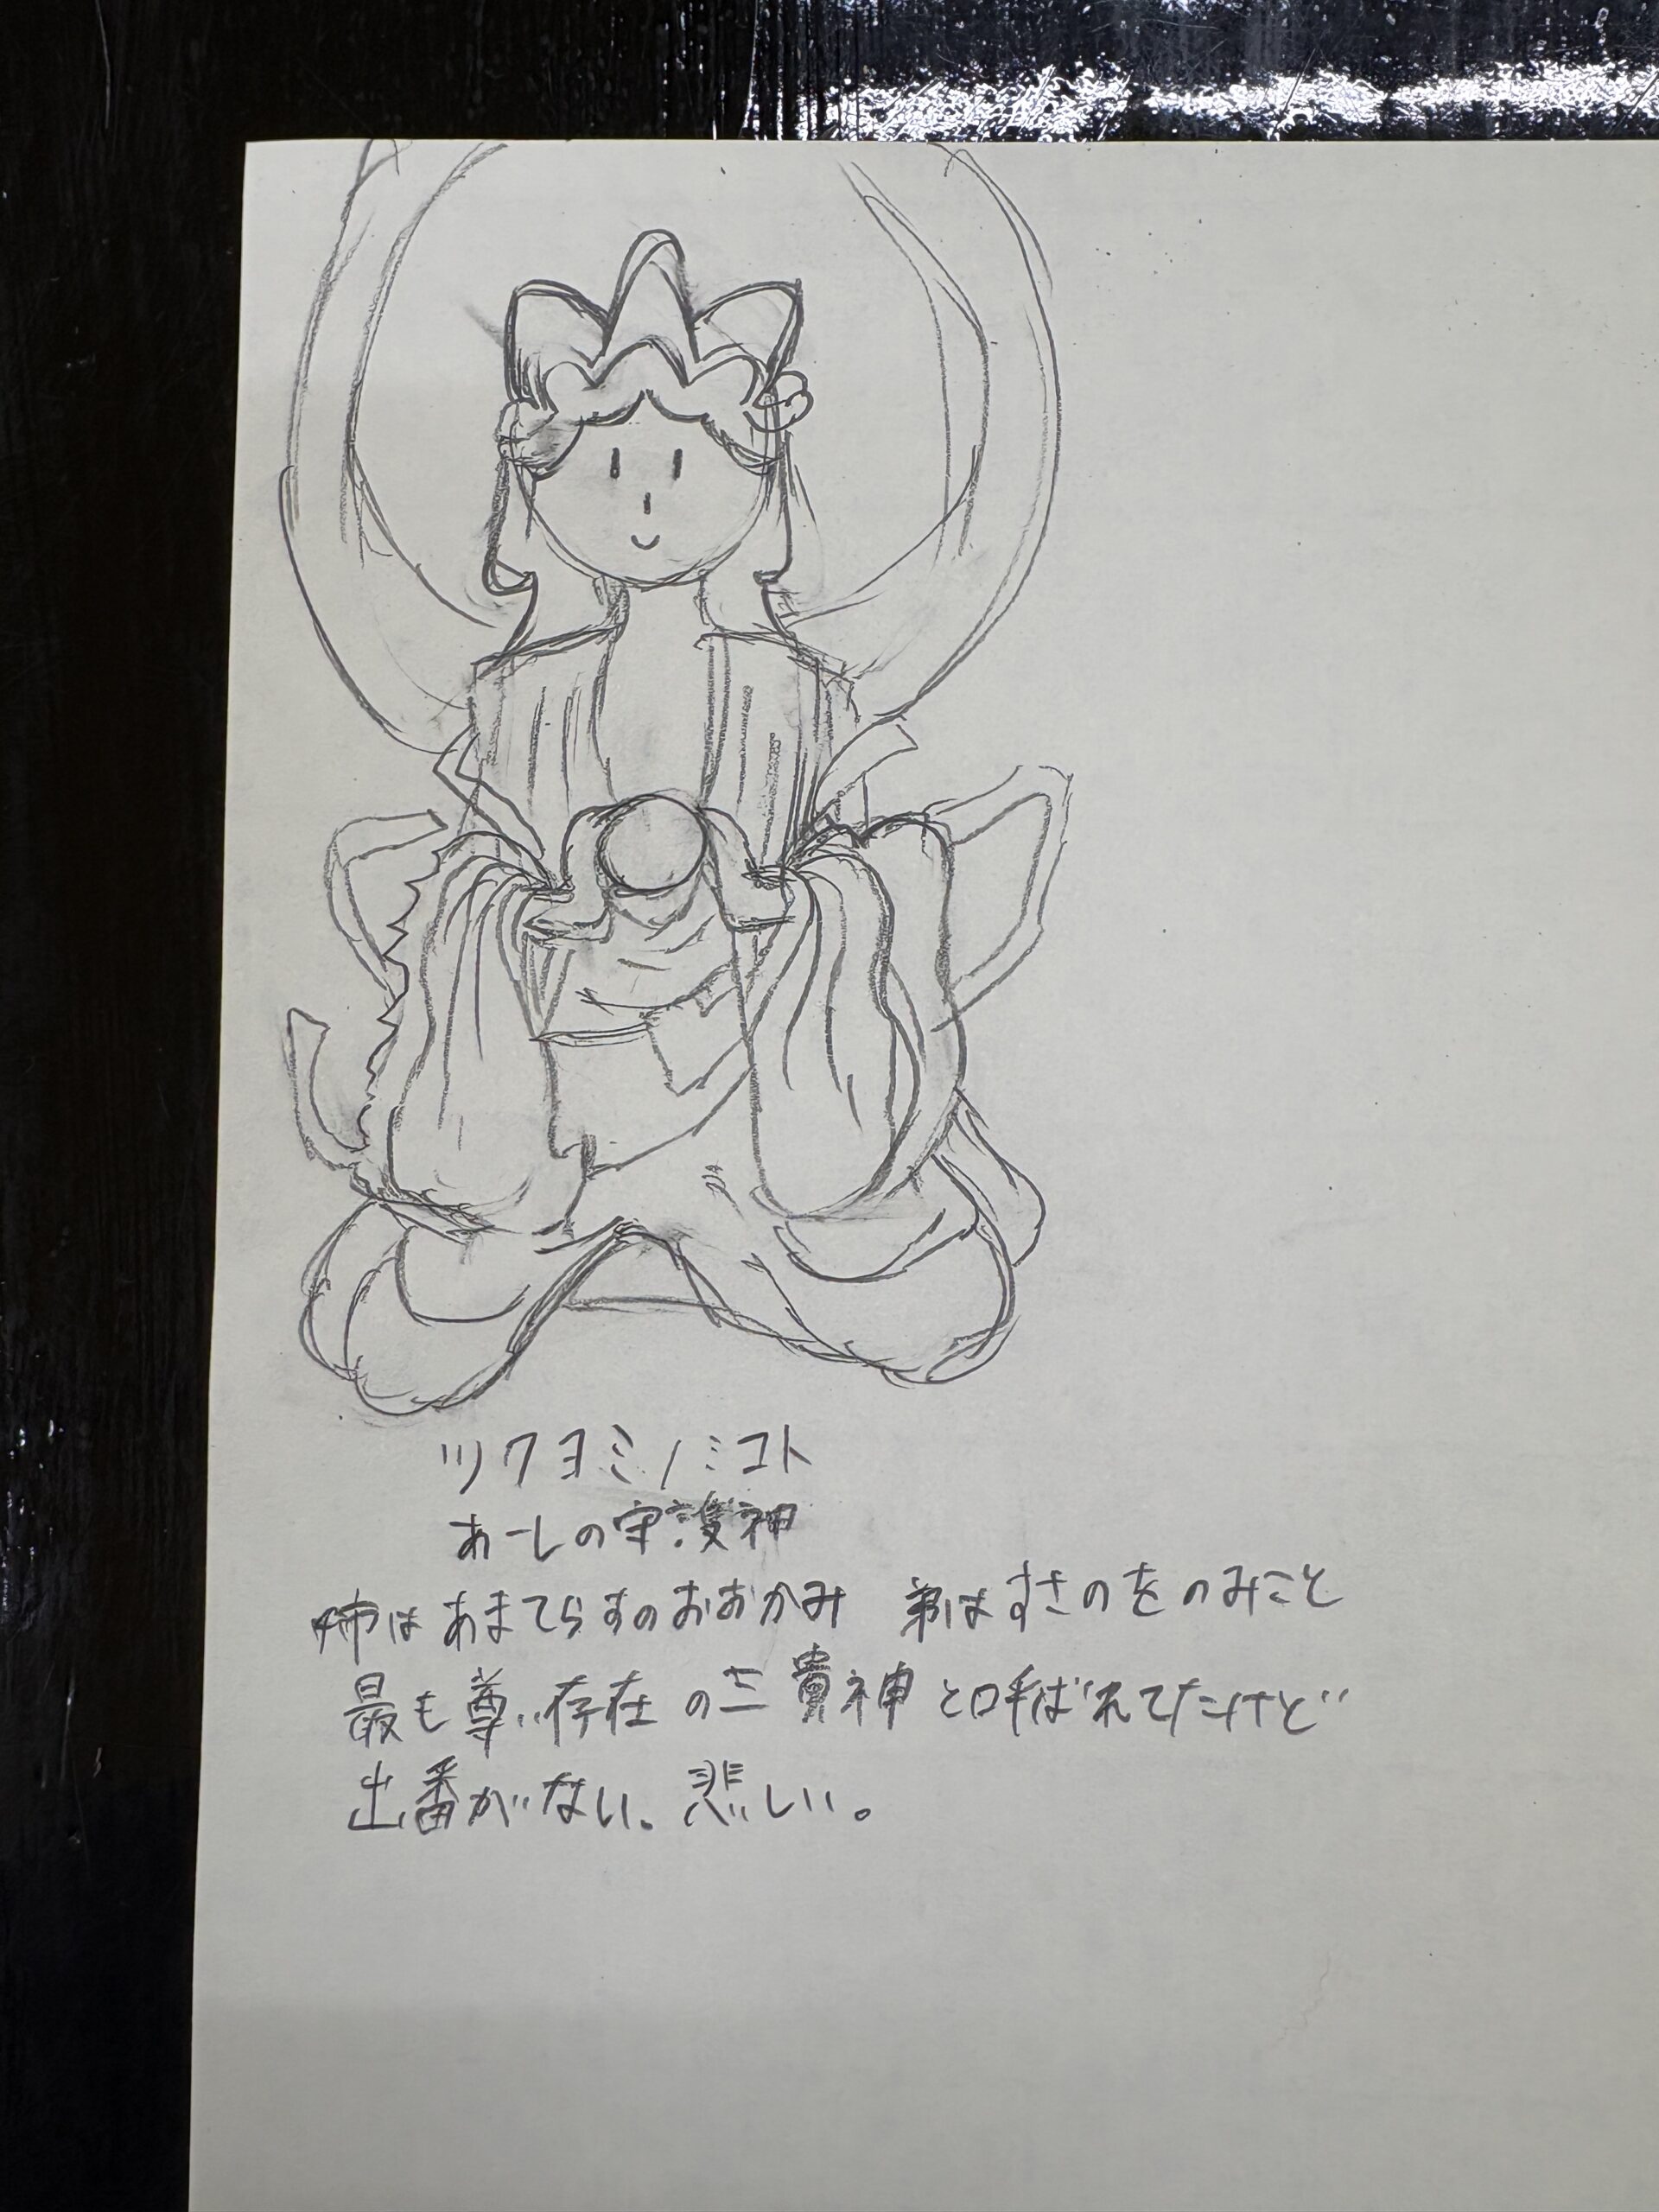 ツクヨミノミコト
あーしの守護神
姉はあまてらすのおおかみ 弟はすさのをのみこと
最も尊い存在の三貴神と呼ばれてたけど
出番がない。悲しい。